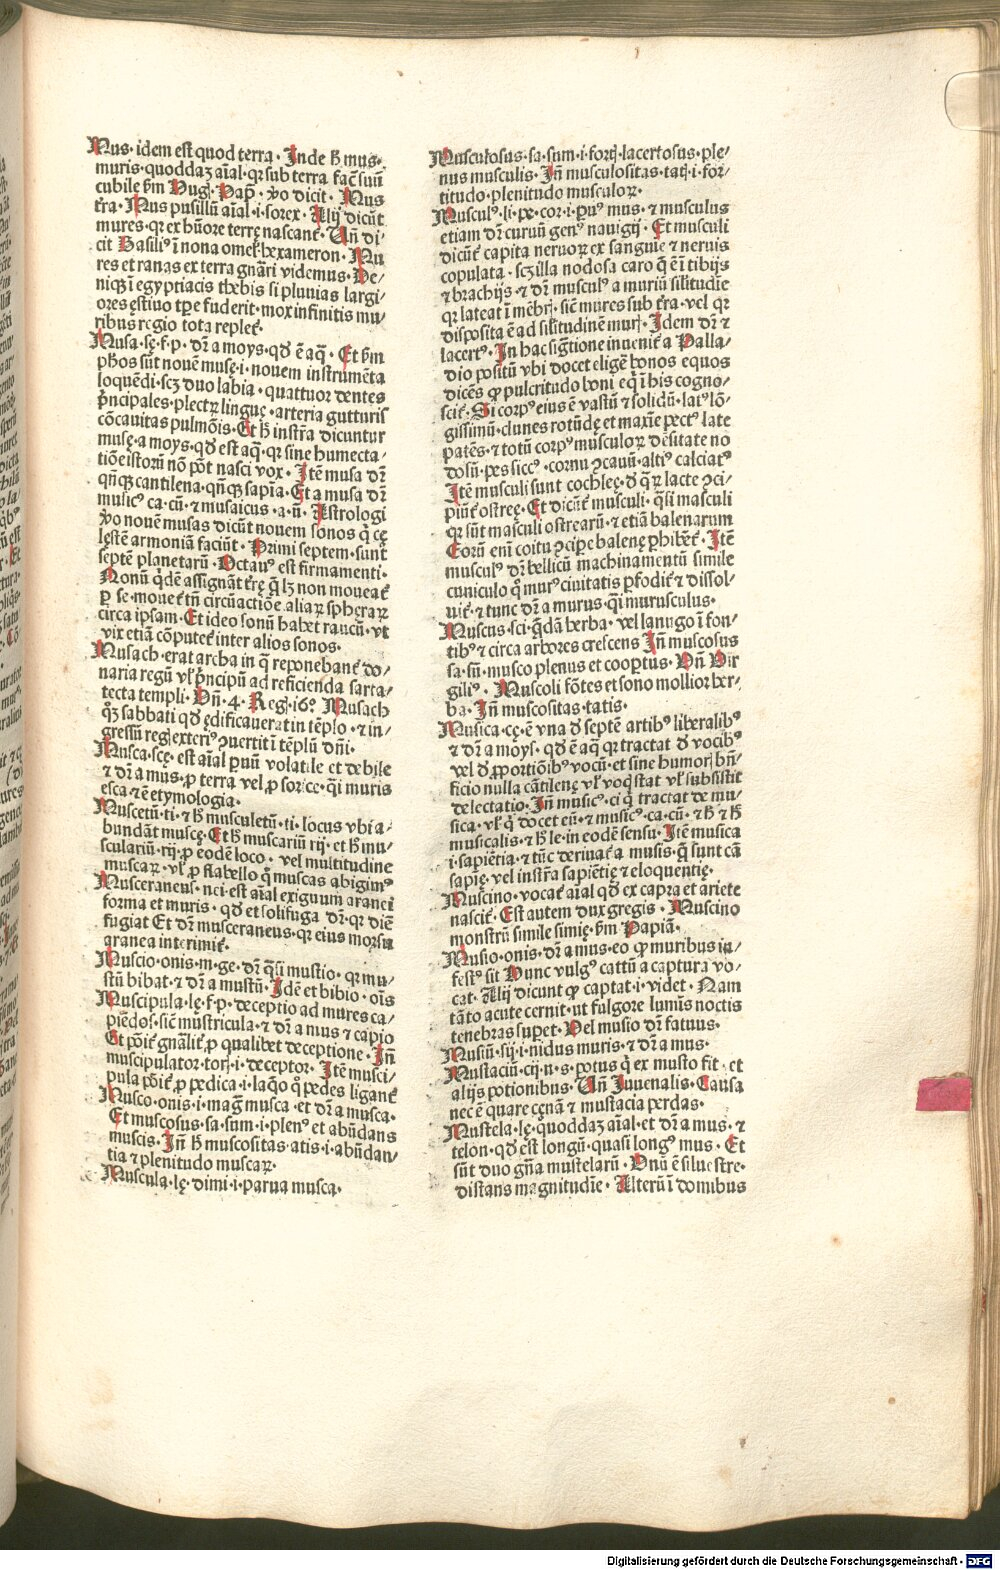 Mus· idem est quod terra · Inde h̄ mus·
muris·quoddaʒ aīal·qꝛ sub terra facͭ suū
cubile ẜm Hugͥ·Pap̄· ꝟo dicit · Mus
tr̄a·Mus pusillū aīal·i·sorex· Alij dicūt
mures·qꝛ ex hūore terrę nascant̄· Un̄ di-
cit Basiliꝰ ī nona omel·hexameron·Mu
res et ranas ex terra gnāri videmus·De/
niqꝫ ī egyptiacis thebis si pluuias largi/
ores ęstiuo tꝑe fuderit·mox infinitis mu/
ribus regio tota replet̄·
Musa·sę·f·p· dr̄ a moys·qđ ē aq̄· Et ẜm
pħos sūt nouē musę·i·nouem instrumēta
loquēdi·scʒ duo labia·quattuor dentes
p̄ncipales·plectꝝ linguę·arteria gutturis
cōcauitas pulmōis·Et h̄ instr̄a dicuntur
musę·a moys·qđ est aq̄·qꝛ sine humecta/
tiōe istoꝝ nō pōt nasci vox· Itē musa dr̄
qn̄qꝫ cantilena·qn̄qꝫ sapīa·Et a musa dr̄
musicꝰ ca·cū·⁊ musaicus·a·ū· Astrologi
ꝟo nouē musas dicūt nouem sonos q̇ cę
lęstē armoniā faciūt· Primi septem sunt
septē planetarū·Octauꝰ est firmamenti·
Nonū q̇dē assignāt tr̄ę q̄ lʒ non moueat̄
ꝑ se·mouet̄ tn̄ circūactiōe aliaꝝ spheraꝝ
circa ipsam·Et ideo sonū habet raucū·vt
vix etiā cōputet̄ inter alios sonos·
Musach·erat archa in q̄ reponebant̄ do/
naria regū vl̄ p̄ncipū ad reficienda sarta/
tecta templi·Un̄·4·Reg·i6º Musach
qꝫ sabbati qđ ędificauerat in tēplo·⁊ in/
gressū reg̣ exteriꝰ ꝯuertit ī tēplū dn̄i·
Musca·scę·est aīal ꝑuū volatile et debile
⁊ dr̄ a mus·ꝓ terra vel ꝓ sorice·qi muris
esca·⁊ ē etymologia·
Muscetū·ti·⁊ h̄ musculetū·ti·locus vbi a/
bundāt muscę·Et h̄ muscariū rij·et h̄ mu/
sculariū·rij·ꝓ eodē loco· vel multitudine
muscaꝝ·vl̄ ꝓ flabello q̄ muscas abigimꝰ
Musceraneus·nei·est aīal exiguum aranei
forma et muris·qđ et solifuga dr̄·qꝛ diē
fugiat Et dr̄ musceraneus·qꝛ eius morsu
aranea interimit̄·
Muscio·onis·m·ge·dr̄ q̄si mustio·qꝛ mu/
stū bibat·⁊ dr̄ a mustū·Idē et bibio·oīs
Muscipula·lę·f·p·deceptio ad mures ca/
piēdos·sic̄ mustricula·⁊ dr̄ a mus ⁊ capio
Et pōit̄ gnālit̄ ꝓ qualibet deceptione·In̄
muscipulator·torꝭ·i·deceptor· Itē musci/
pula pōit̄ ꝓ pedica·i·laq̊o q̊ pedes ligant̄
Musco·onis·i·maḡ musca·et dr̄ a musca·
Et muscosus·sa·sum·i·plenꝰ et abūdans
muscis·In̄ h̄ muscositas·atis·i·abūdan/
tia ⁊ plenitudo muscaꝝ·
Muscula·lę·dimi·i·parua musca·
Musculosus·sa·sum·i·fortꝭ·lacertosus·ple/
nus musculis·In̄ musculositas·tatꝭ·i·for/
titudo·plenitudo musculoꝝ·
Musculꝰ·li·pe·cor·i·ꝑuꝰ mus·⁊ musculus
etiam dr̄ curuū genꝰ nauigij·Et musculi
dicūt̄ capita neruoꝝ ex sanguīe ⁊ neruis
copulata·scʒ illa nodosa caro q̄ ē ī tibijs
⁊ brachijs·⁊ dr̄ musculꝰ a muriū sīlitudīe
qꝛ lateat ī mēbrꝭ·sic̄ mures sub tr̄a·vel qꝛ
disposita ē ad sīlitudinē murꝭ·Idem dr̄ ⁊
lacertꝰ·In hac sig̅tione inuenit̄ a Palla/
dio positū vbi docet eligē bonos equos
dicēs ꝙ pulcritudo boni eq̇ ī his cogno/
scit̄·Si corpꝰ eius ē vastū ⁊ solidū·latꝰ lō/
gissimū·clunes rotūdę et maxīe·pectꝰ late
patēs·⁊ totū corpꝰ musculoꝝ dēsitate no
dosū·pes siccꝰ·cornu ꝯcauū·altiꝰ calciatꝰ
Itē musculi sunt cochleę·ꝺ qͥꝝ lacte ꝯci/
piūt̄ ostreę·Et dicūt̄ musculi·q̄si masculi
qꝛ sūt masculi ostrearū·⁊ etiā balenarum
Eorū eni coitu ꝯcipe balenę ꝑhibēt̄·Itē
musculꝰ dr̄ bellicū machinamentū simile
cuniculo q̊ murꝰ ciuitatis ꝑfodit̄ ⁊ dissol/
uit̄·⁊ tunc dr̄ a murus·q̄i murusculus·
Muscus·sci·q̄dā herba·vel lanugo ī fon/
tibꝰ ⁊ circa arbores crescens In̄ muscosus
sa·sū·musco plenus et cooꝑtus·Un̄ Vir
giliꝰ· Muscoli fōtes et sono mollior her/
ba·In̄ muscositas·tatis·
Musica·cę·ē vna ꝺ septē artibꝰ liberalibꝰ
⁊ dr̄ a moys·qđ ē aq̄ qꝛ tractat ꝺ vocibꝰ
vel ꝺ ꝓportiōibꝰ vocū·et sine humorꝭ bn̄/
ficio nulla cātilenę vl̄ voqͥstat vl̄ subsistit
delectatio·In̄ musicꝰ·ci q̇ tractat de mu/
sica·vl̄ q̇ docet eū·⁊ musicꝰ·ca·cū·⁊ h̄ ⁊ h̄
musicalis·⁊ h̄ le·in eodē sensu·Itē musica
i·sapiētia·⁊ tūc deriuat̄ a musis·q̄ sunt cā
sapię·vel instr̄a sapiētię ⁊ eloquentię·
Muscino·vocat̄ aīal qđ ex capra et ariete
nascit̄·Est autem dux gregis· Muscino
monstrū simile simię·ẜm Papiā·
Musio·onis·dr̄ a mus·eo ꝙ muribus in/
festꝰ sit Hunc vulgꝰ cattū a captura vo/
cat·Alij dicunt ꝙ captat·i·videt· Nam
tāto acute cernit·ut fulgore lumīs noctis
tenebras suꝑet·Vel musio dr̄ fatuus·
Musiū·sij·i·nidus muris·⁊ dr̄ a mus·
Mustaciū·cij·n·s·potus q̇ ex musto fit·et
alijs potionibus·Un̄ Iuuenalis·Causa
nec ē quare cęnā ⁊ mustacia perdas·
Mustela·lę·quoddaʒ aīal·et dr̄ a mus·⁊
telon·qđ est longū·quasi longꝰ mus· Et
sūt duo gn̄a mustelarū·Unū ē siluestre·
distans magnitudīe·Alterū ī domibus
Digitalisierung gefördert durch die Deutsche Forschungsgemeinschaft · DFG